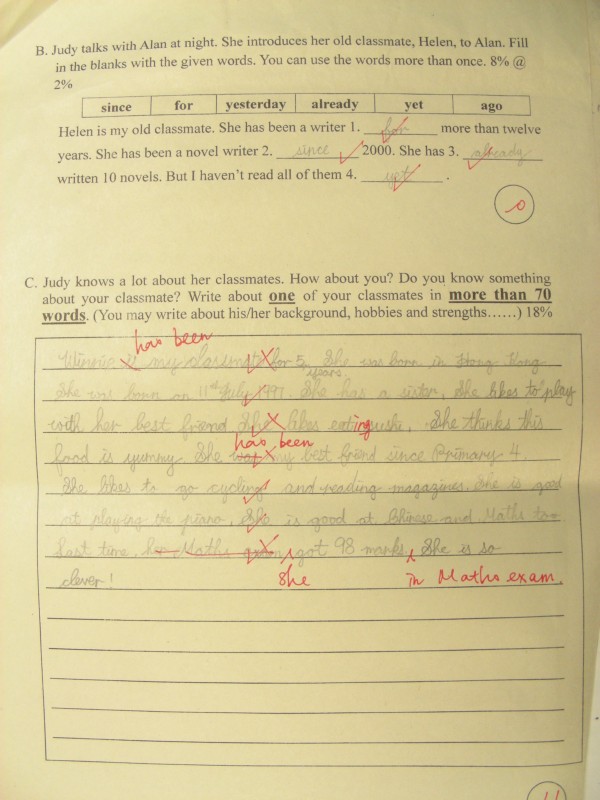 B. Judy talks with Alan at night. She introduces her old classmate, Helen, to Alan. Fill
in the blanks with the given words. You can use the words more than once. 8% @
2%
since for yesterday already yet ago
Helen is my old classmate. She has been a writer 1. for more than twelve
years. She has been a novel writer 2. since 2000. She has 3. already
written 10 novels. But I haven't read all of them 4. yet .
0
C. Judy knows a lot about her classmates. How about you? Do you know something
about your classmate? Write about one of your classmates in more than 70
words. (You may write about his/her background, hobbies and strengths......) 18%
has been
Winnie is my classmate for 5 years. She was born in Hong Kong.
She was born on 11st July 1997. She has a sister. She likes to play
with her best friend. She likes eating sushi. She thinks this
has been
food is yummy. She was my best friend since Primary 4.
She likes to go cycling and reading magazines. She is good
at playing the piano. She is good at Chinese and Maths too.
Last time, her Maths got 98 marks. She is so
clever! She in Maths exam.